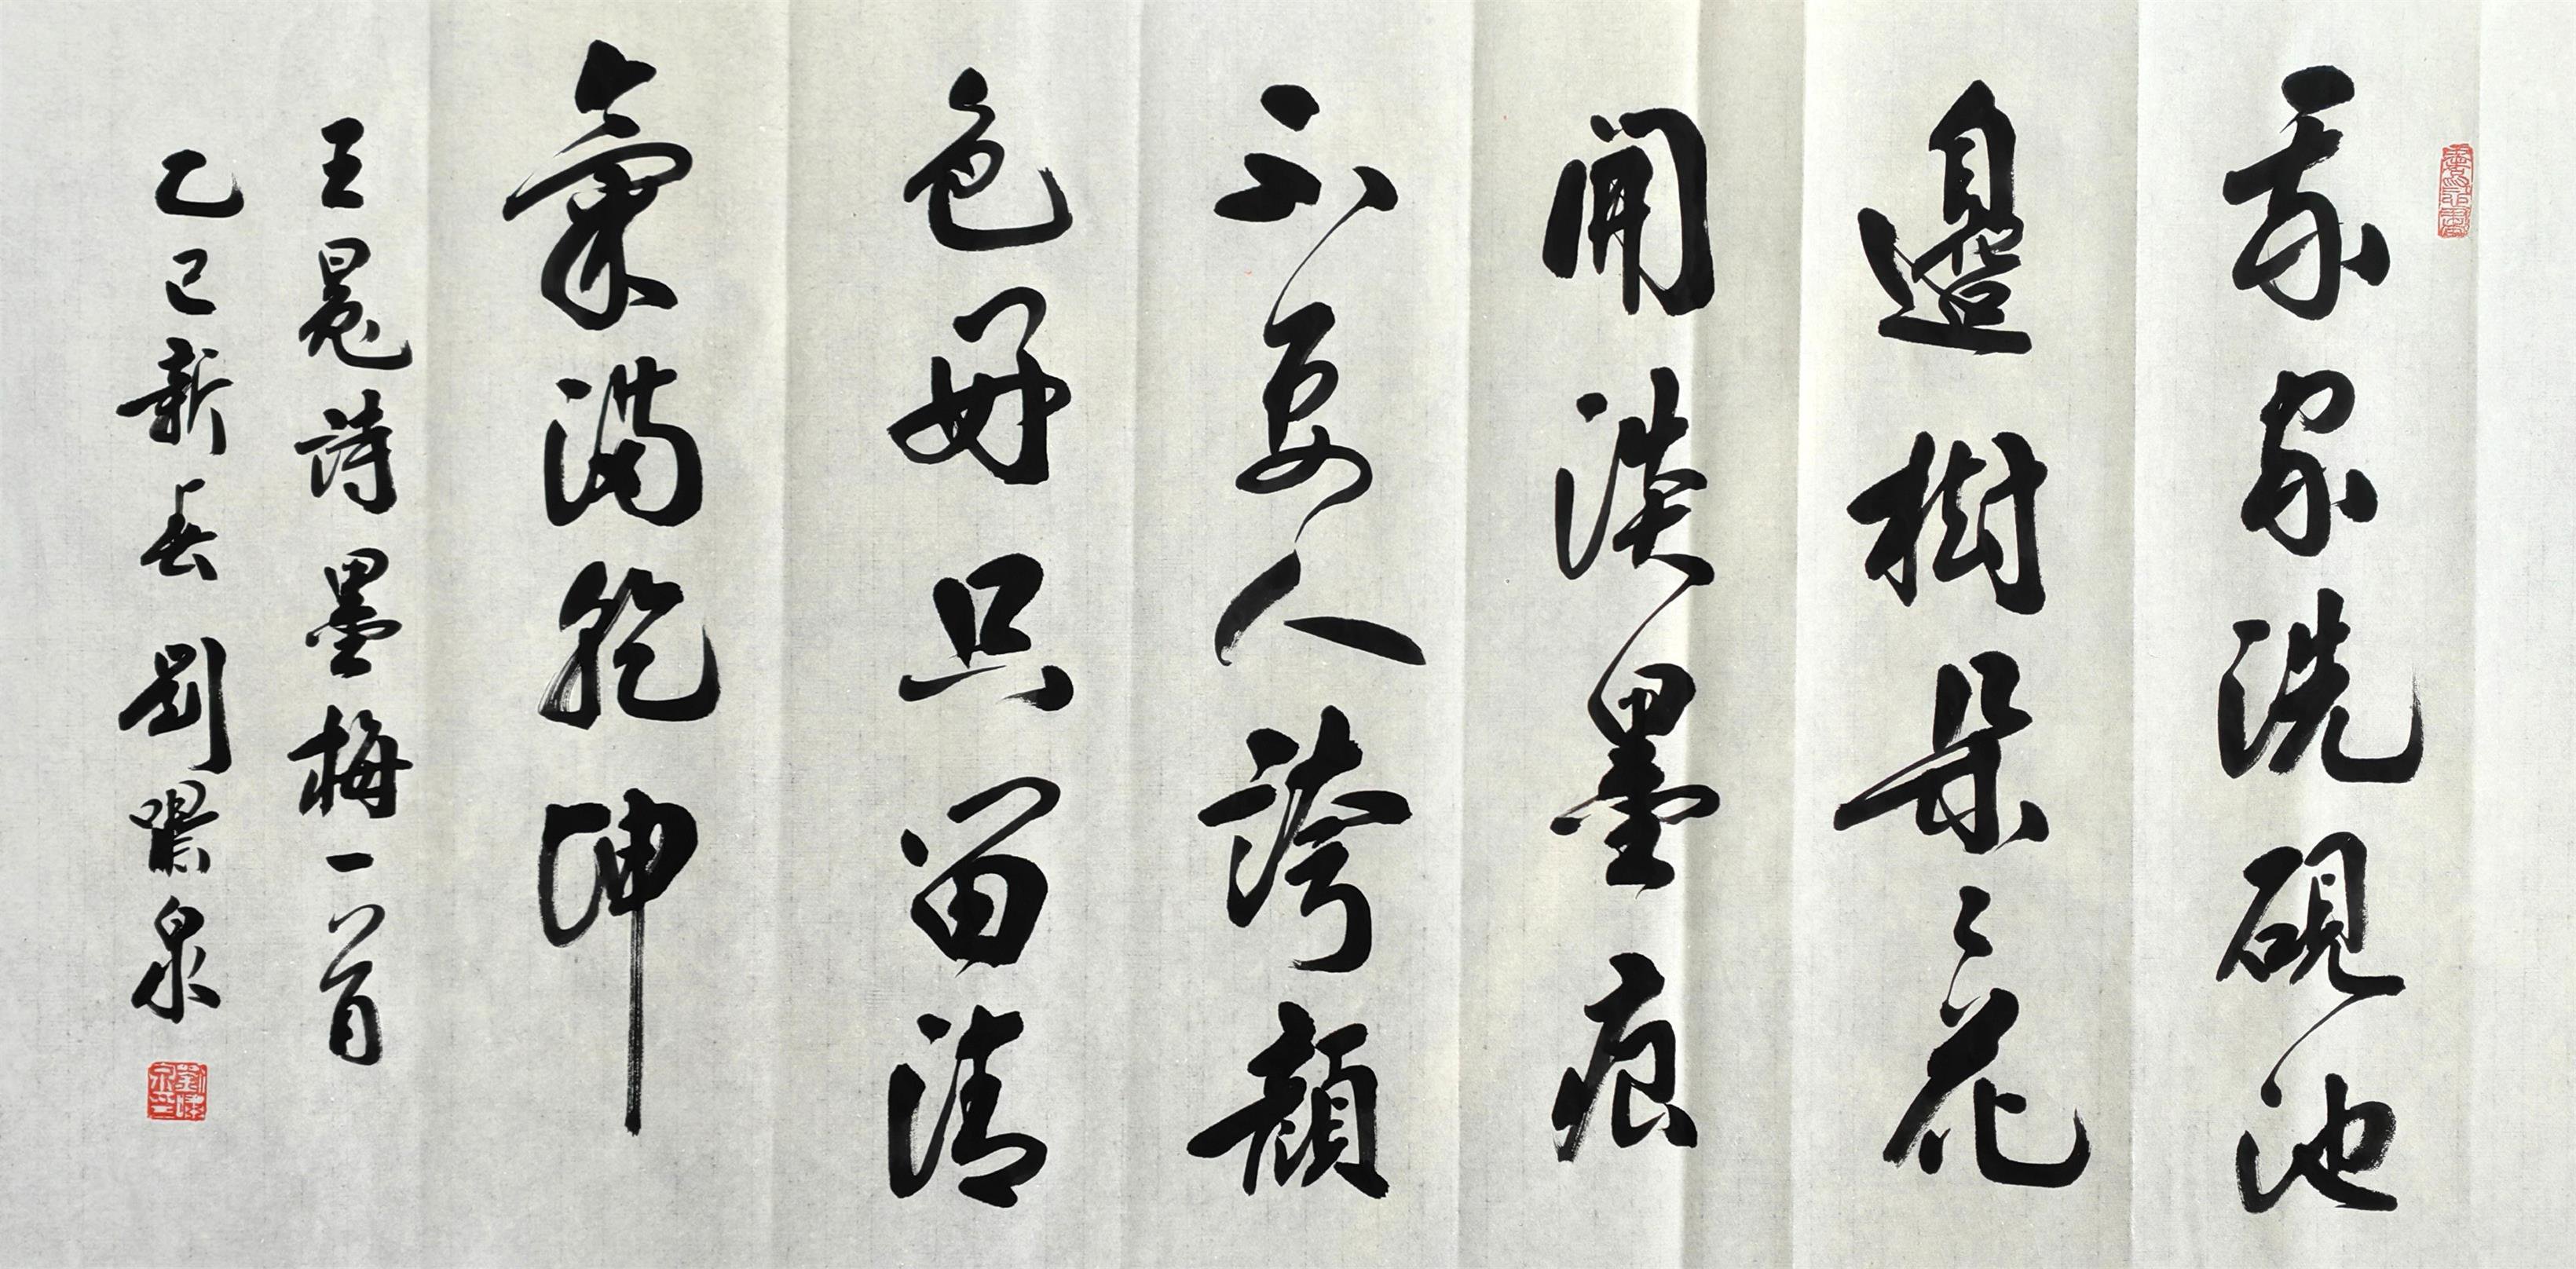 吾家洗硯池
邊樹朵々花
開淡墨痕
不要人誇顏
色好只留清
氣滿乾坤
王冕詩墨梅一首
乙巳新春劉樂泉